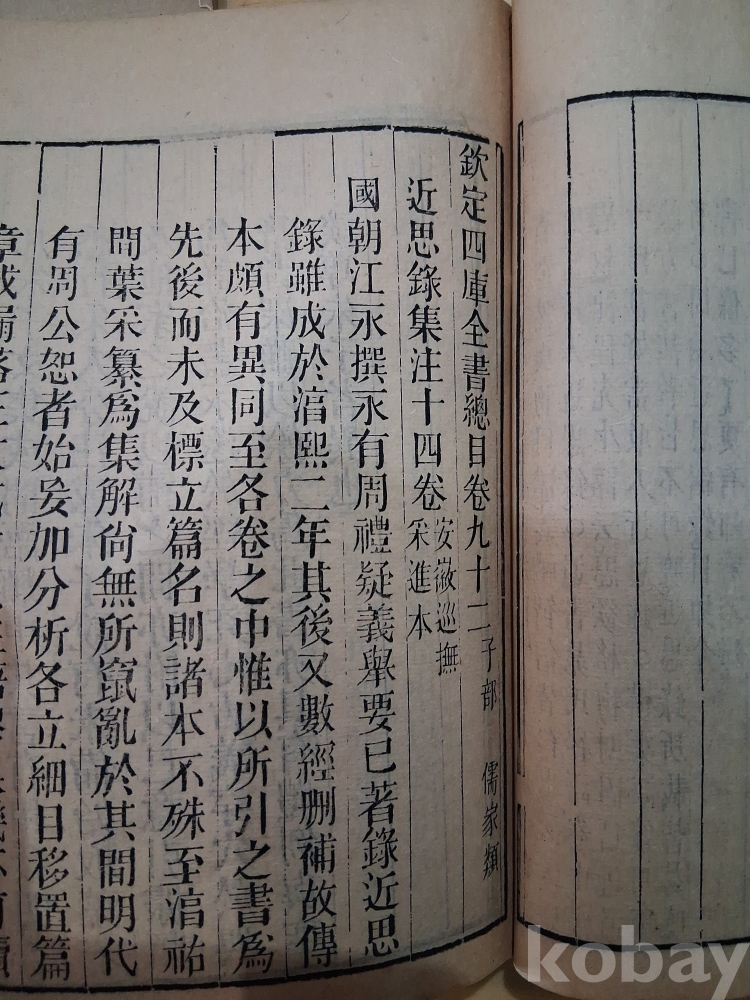 欽定四庫全書總目卷九十二 子部 儒家類
近思錄集注十四卷 安徽巡撫采進本
國朝江永撰永有周禮疑義舉要已著錄近思
錄雖成於湻熙二年其後又數經刪補故傳
本頗有異同至各卷之中惟以所引之書爲
先後而未及標立篇名則諸本不殊至湻祐
間葉采纂爲集解尙無所竄亂於其間明代
有周公恕者始妄加分析各立細目移置篇
章或漏落正文
kobay